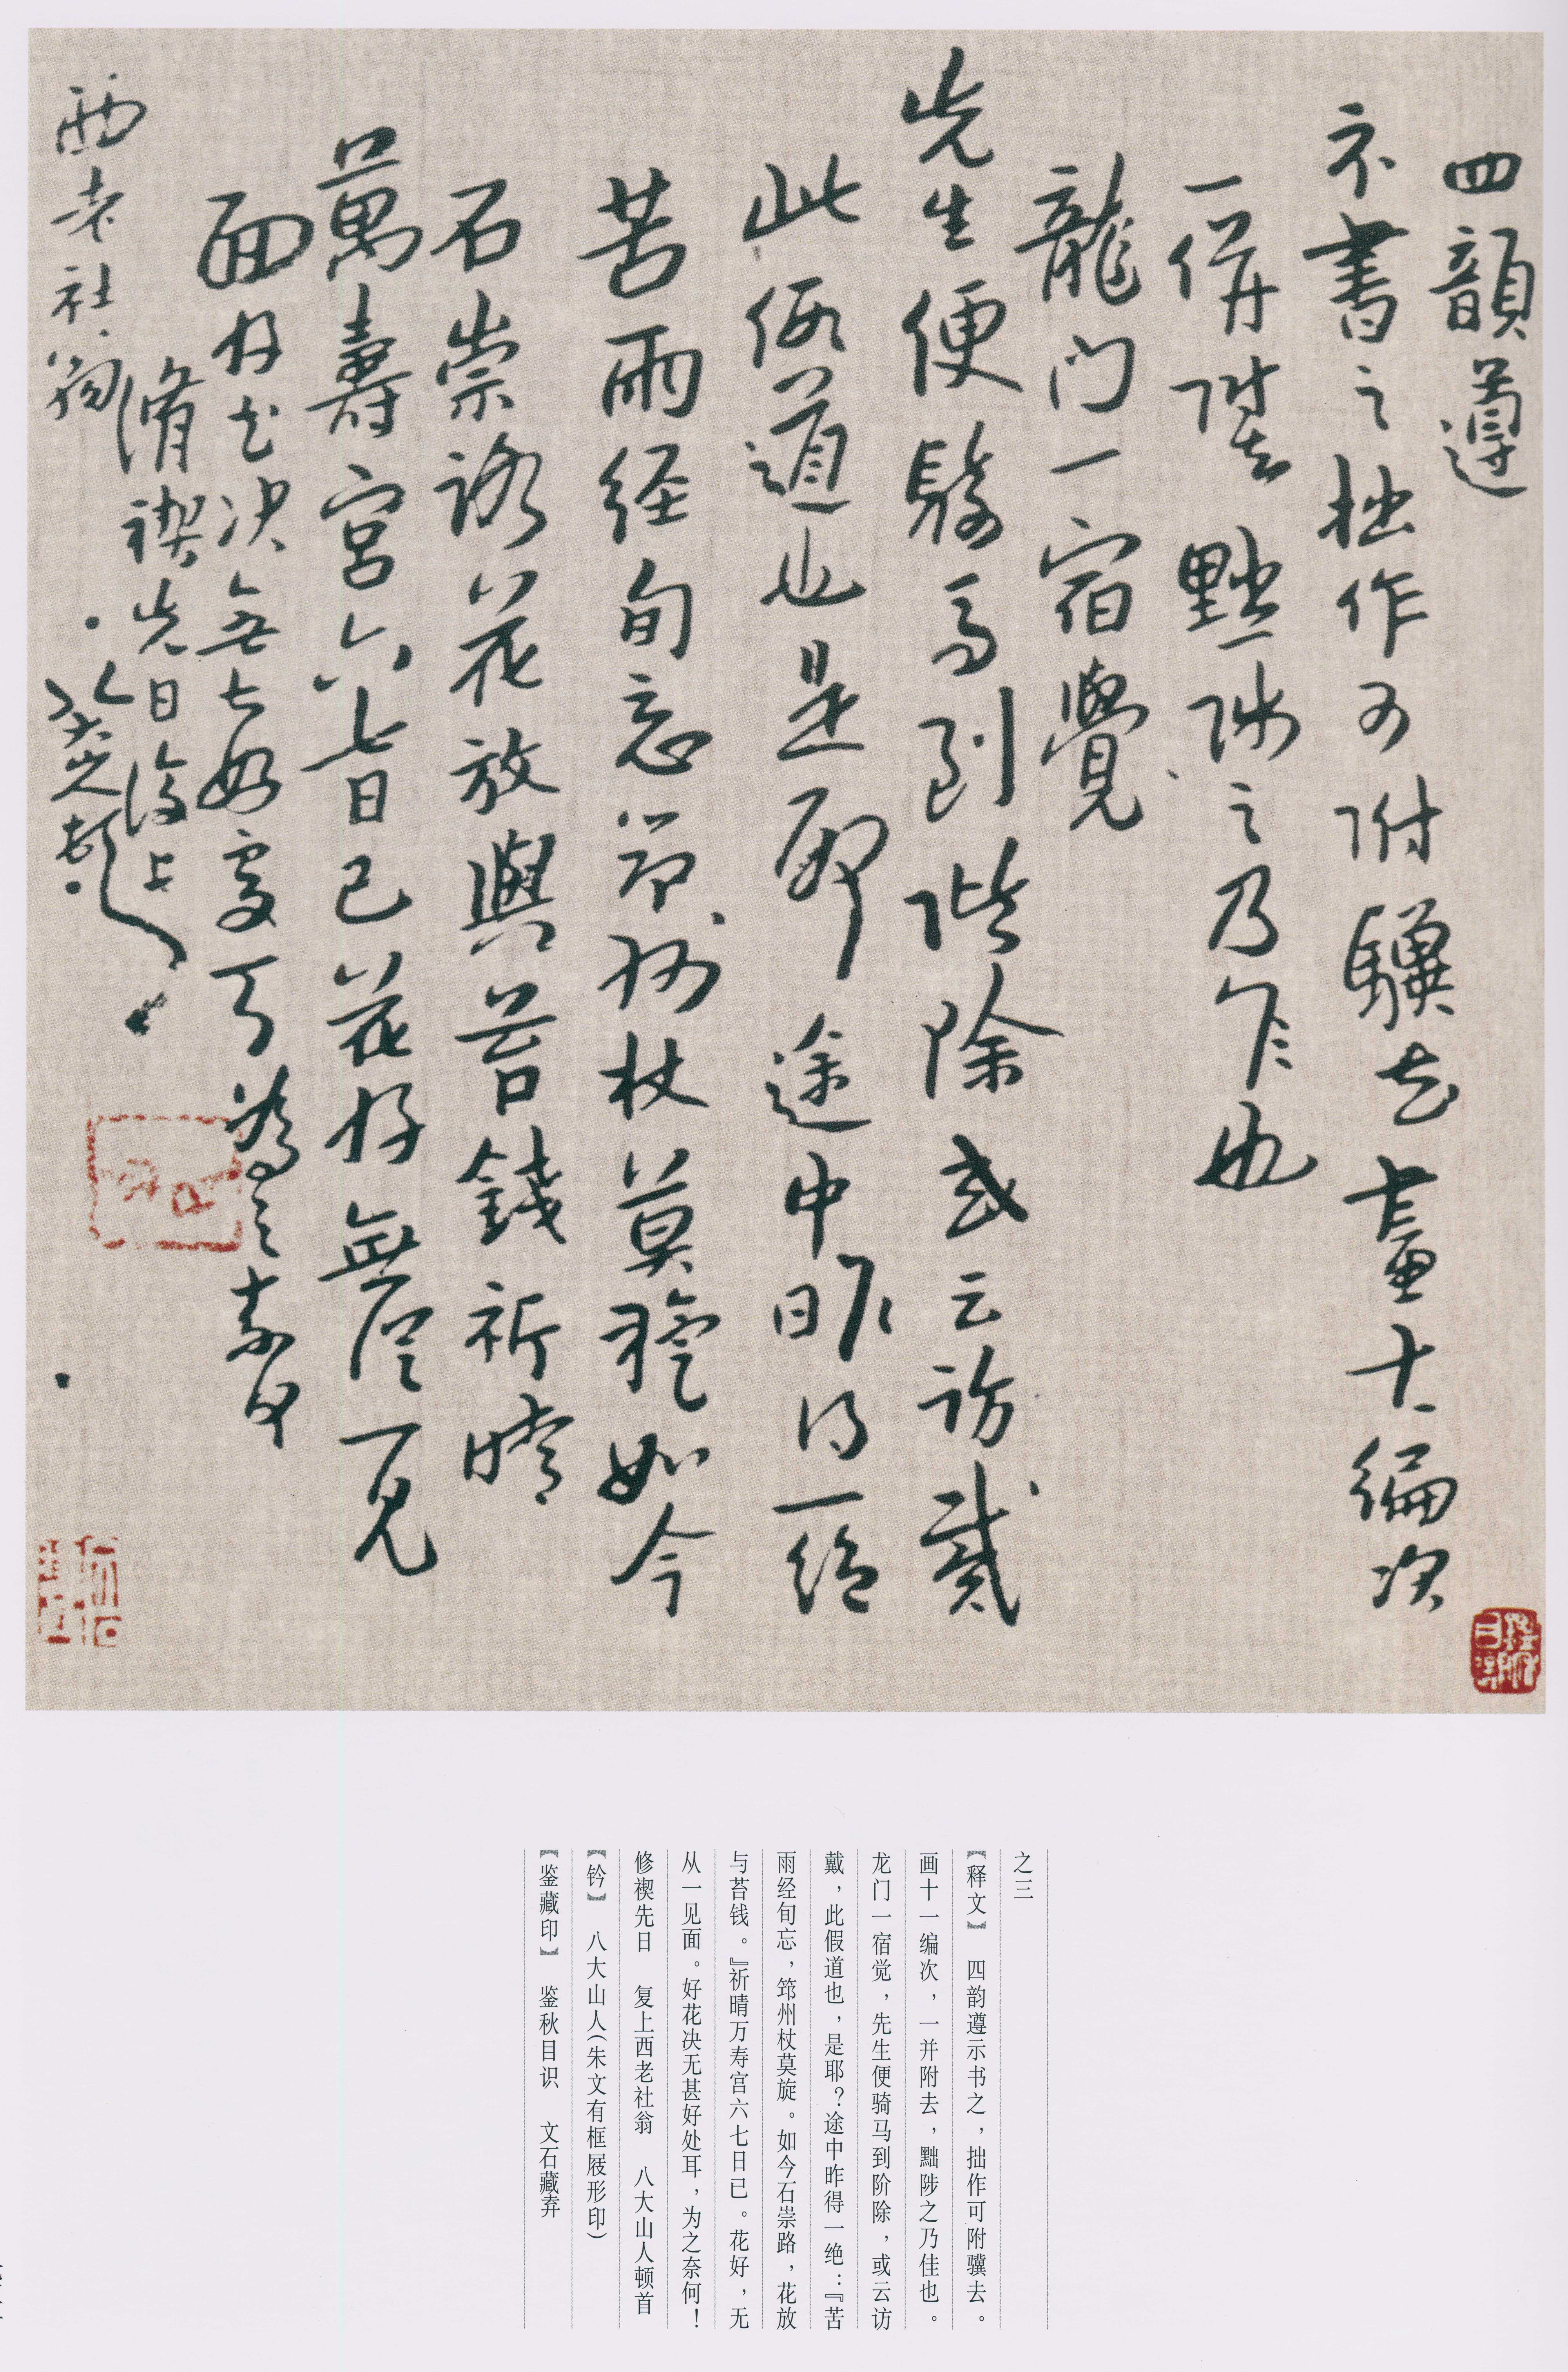 四韻遵
示書之拙作可附驥去畫十一編次
一併附去黜陟之乃佳也
龍门一宿覺
先生便騎馬到階除或云訪戴
此假道也是耶途中昨得一绝
苦雨经旬忘筇州杖莫旋如今
石崇路花放與苔錢祈晴
萬壽宮六七日已花好無從一見
面好花決無甚好處耳為之奈何
脩禊先日復上
西老社翁
八大山人頓首
之三
【释文】 四韵遵示书之，拙作可附骥去。
画十一编次，一并附去，黜陟之乃佳也。
龙门一宿觉，先生便骑马到阶除，或云访
戴，此假道也，是耶？途中昨得一绝：『苦
雨经旬忘，筇州杖莫旋。如今石崇路，花放
与苔钱。』祈晴万寿宫六七日已。花好，无
从一见面。好花决无甚好处耳，为之奈何！
修禊先日 复上西老社翁 八大山人顿首
【钤】 八大山人（朱文有框屐形印）
【鉴藏印】 鉴秋目识 文石藏弆